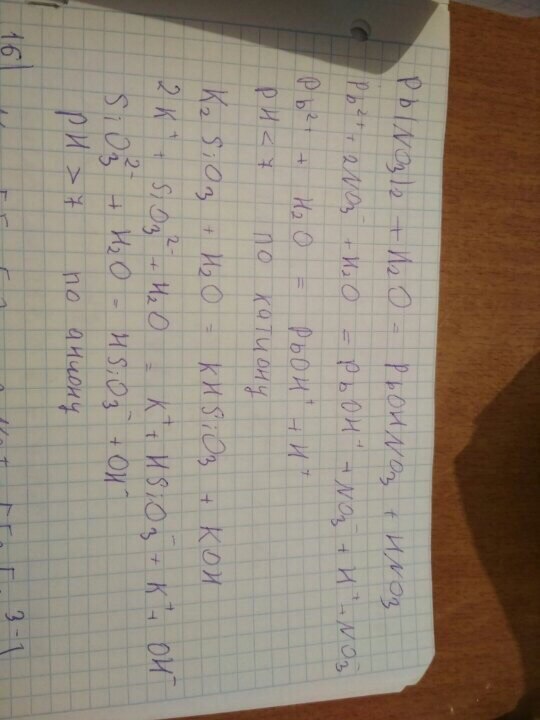 Pb(NO3)2 + H2O = PbOHNO3 + HNO3
Pb²⁺ + 2NO3⁻ + H2O = PbOH⁺ + NO3⁻ + H⁺ + NO3⁻
Pb²⁺ + H2O = PbOH⁺ + H⁺
pH < 7 по катиону
K2SiO3 + H2O = KHSiO3 + KOH
2K⁺ + SiO3²⁻ + H2O = K⁺ + HSiO3⁻ + K⁺ + OH⁻
SiO3²⁻ + H2O = HSiO3⁻ + OH⁻
pH > 7 по аниону
16)